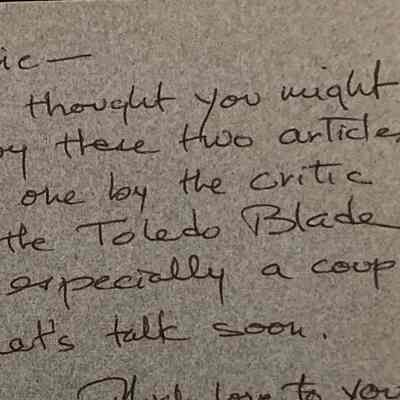 ic —
thought you might
oy these two article
one by the critic
the Toledo Blade
especially a coup
et's talk soon.
love to you